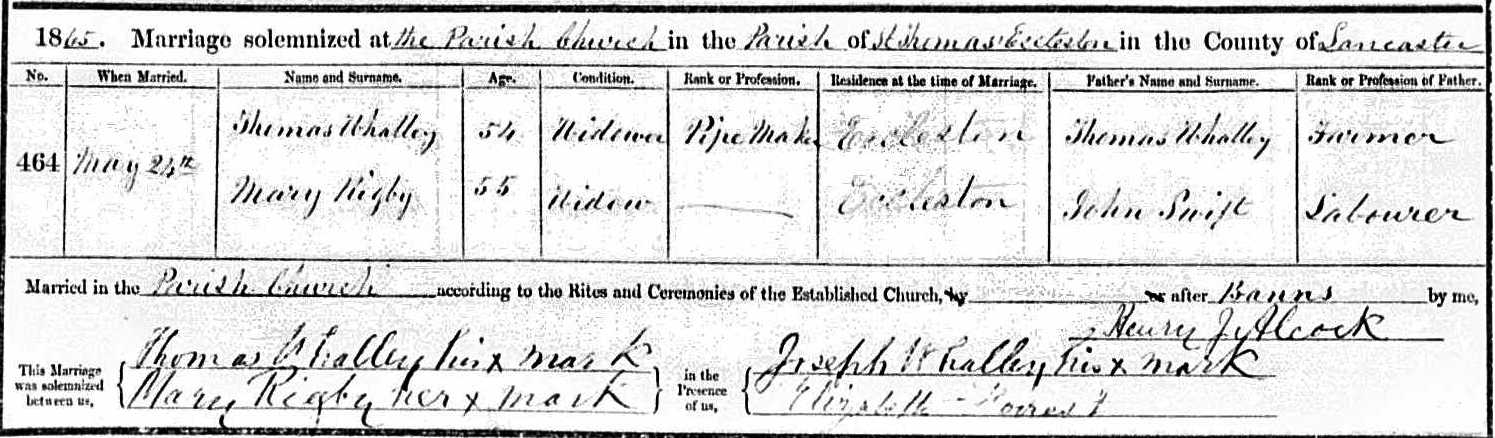 1865. Marriage solemnized at the Parish Church in the Parish of St Thomas Eccleston in the County of Lancaster
No. When Married. Name and Surname. Age. Condition. Rank or Profession. Residence at the time of Marriage. Father's Name and Surname. Rank or Profession of Father.
464 May 24th
Thomas Whalley 54 Widower Pipe Maker Eccleston Thomas Whalley Farmer
Mary Rigby 55 Widow — Eccleston John Swift Labourer
Married in the Parish Church according to the Rites and Ceremonies of the Established Church, by or after Banns by me,
Henry J Alcock
This Marriage was solemnized between us,
Thomas Whalley his x mark
Mary Rigby her x mark
in the Presence of us,
Joseph Whalley his x mark
Elizabeth